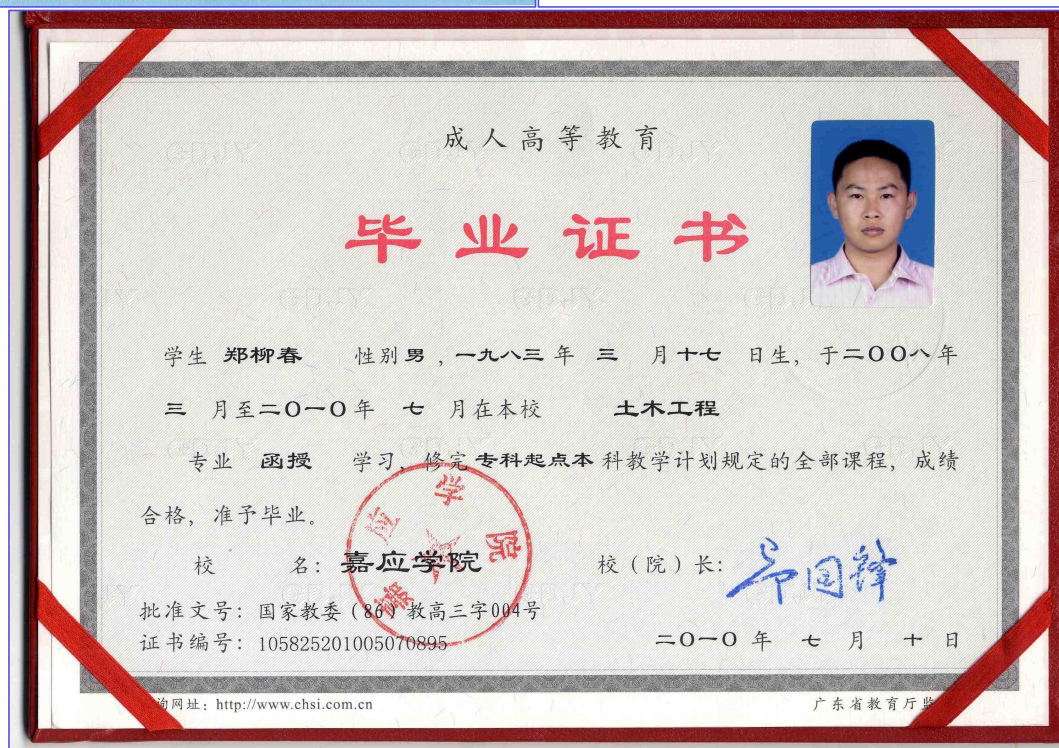 成人高等教育
毕业证书
学生 郑柳春 性别 男 , 一九八三 年 三 月 十七 日生, 于二〇〇八 年
三 月至二〇一〇 年 七 月在本校 土木工程
专业 函授 学习, 修完 专科起点本 科教学计划规定的全部课程, 成绩
合格, 准予毕业。
校 名: 嘉应学院 校(院)长:
嘉应学院
批准文号: 国家教委(86)教高三字004号
证书编号: 105825201005070895 二〇一〇 年 七 月 十 日
询网址: http://www.chsi.com.cn 广东省教育厅监